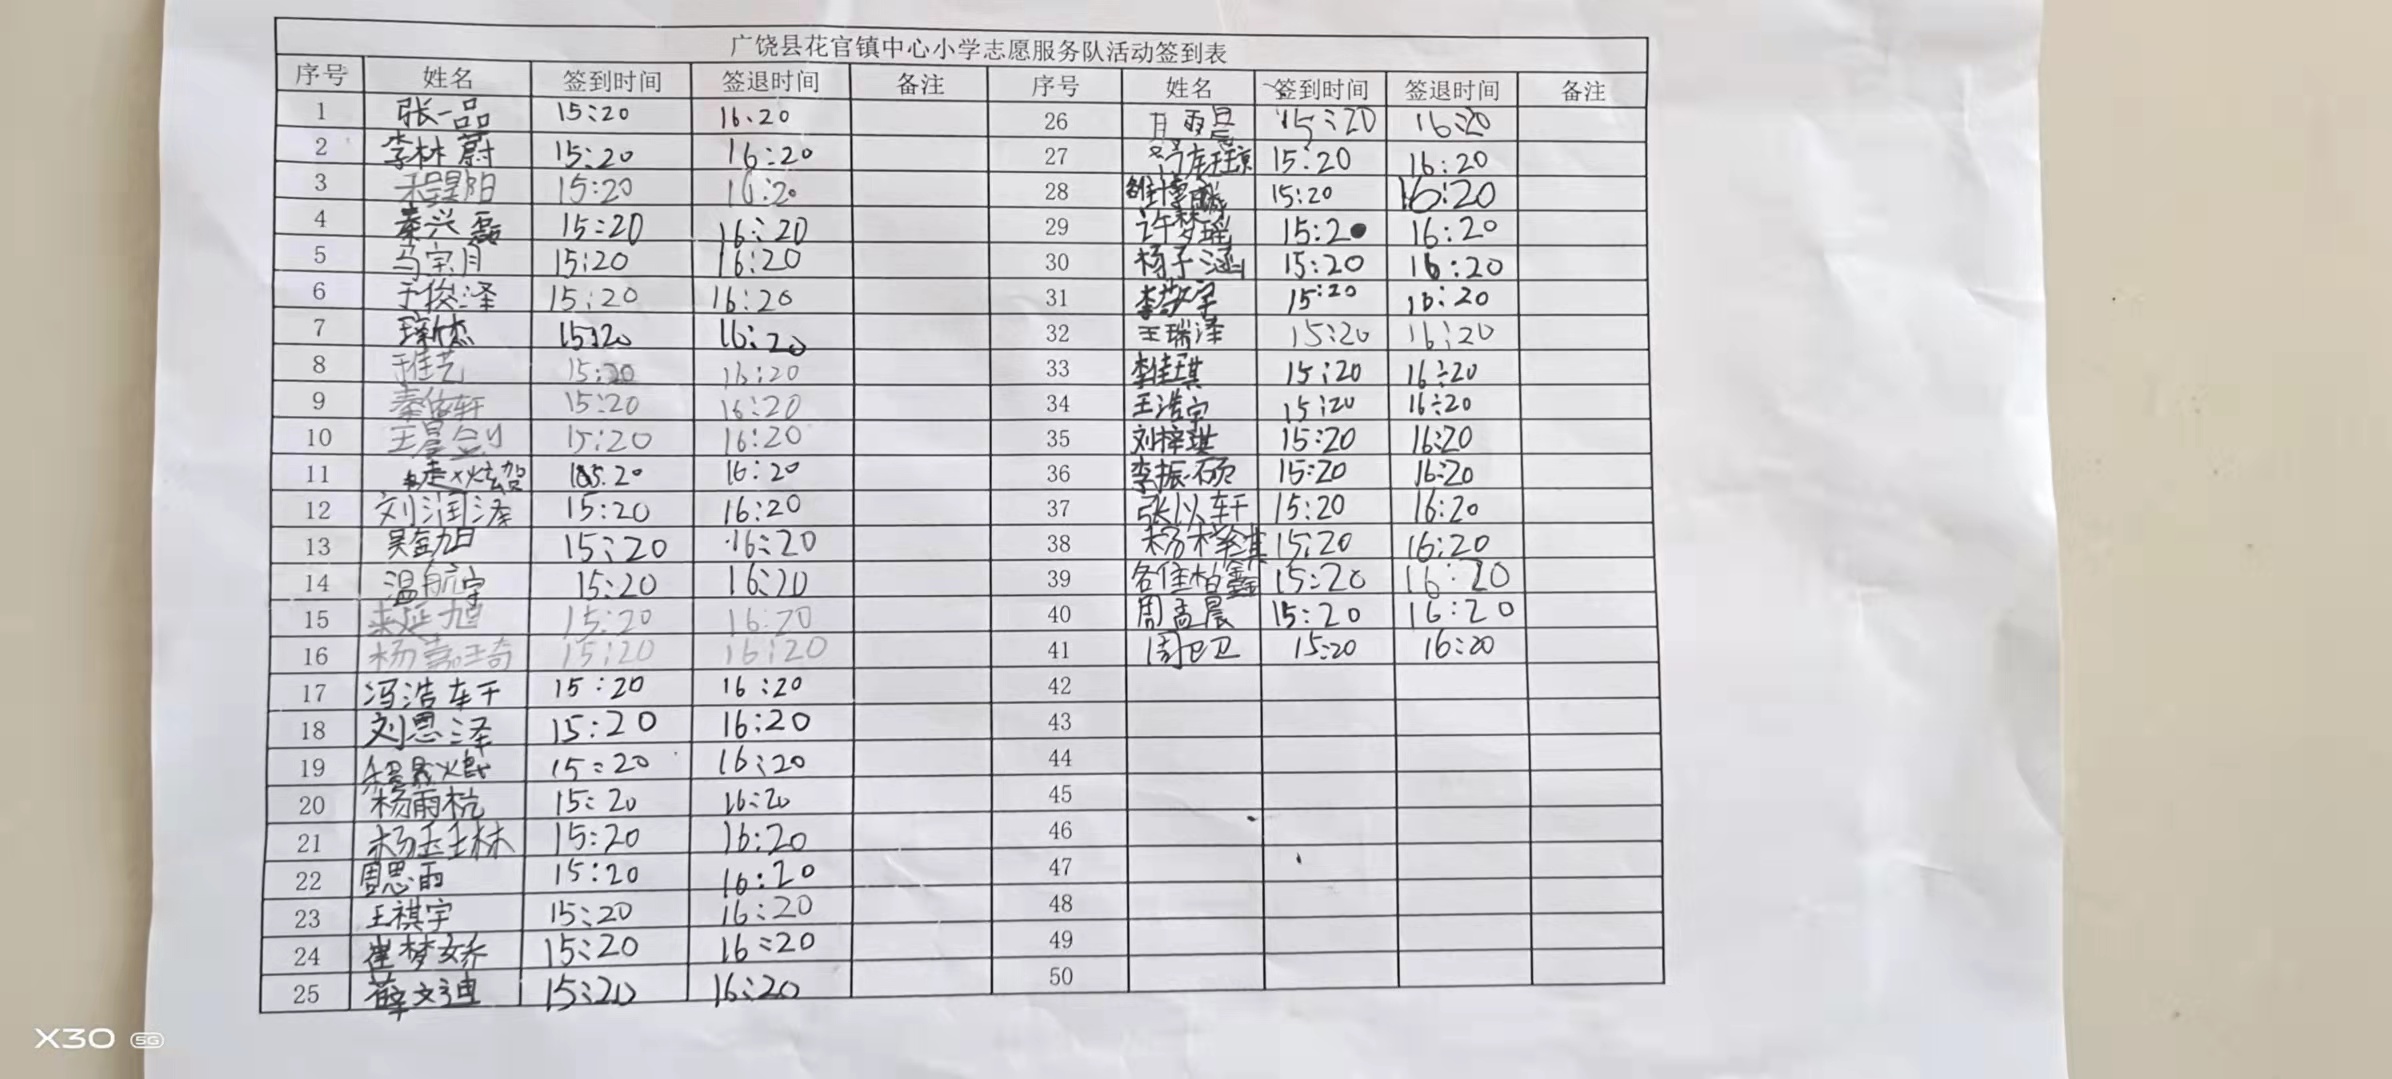 广饶县花官镇中心小学志愿服务队活动签到表
序号 姓名 签到时间 签退时间 备注 序号 姓名 签到时间 签退时间 备注
1 张一品 15:20 16.20 26 15:20 16:20
2 李林蔚 15:20 16:20 27 15:20 16:20
3 程昱阳 15:20 16:20 28 15:20 16:20
4 秦兴磊 15:20 16:20 29 许梦瑶 15:20 16:20
5 马宝月 15:20 16:20 30 杨子涵 15:20 16:20
6 于俊泽 15:20 16:20 31 李敬宇 15:20 16:20
7 15:20 16:20 32 王瑞泽 15:20 16:20
8 15:20 16:20 33 李佳琪 15:20 16:20
9 秦依轩 15:20 16:20 34 王浩宇 15:20 16:20
10 王晨剑 15:20 16:20 35 刘梓琪 15:20 16:20
11 15.20 16:20 36 李振硕 15:20 16:20
12 刘润泽 15:20 16:20 37 张以轩 15:20 16:20
13 吴金旭 15:20 16:20 38 15:20 16:20
14 温航宇 15:20 16:20 39 15:20 16:20
15 来延旭 15:20 16:20 40 周孟晨 15:20 16:20
16 杨嘉琦 15:20 16:20 41 周卫卫 15:20 16:20
17 冯浩轩 15:20 16:20 42
18 刘恩泽 15:20 16:20 43
19 15:20 16:20 44
20 杨雨杭 15:20 16:20 45
21 杨玉琳 15:20 16:20 46
22 周思雨 15:20 16:20 47
23 王祺宇 15:20 16:20 48
24 崔梦娇 15:20 16:20 49
25 薛文迪 15:20 16:20 50
X30 5G